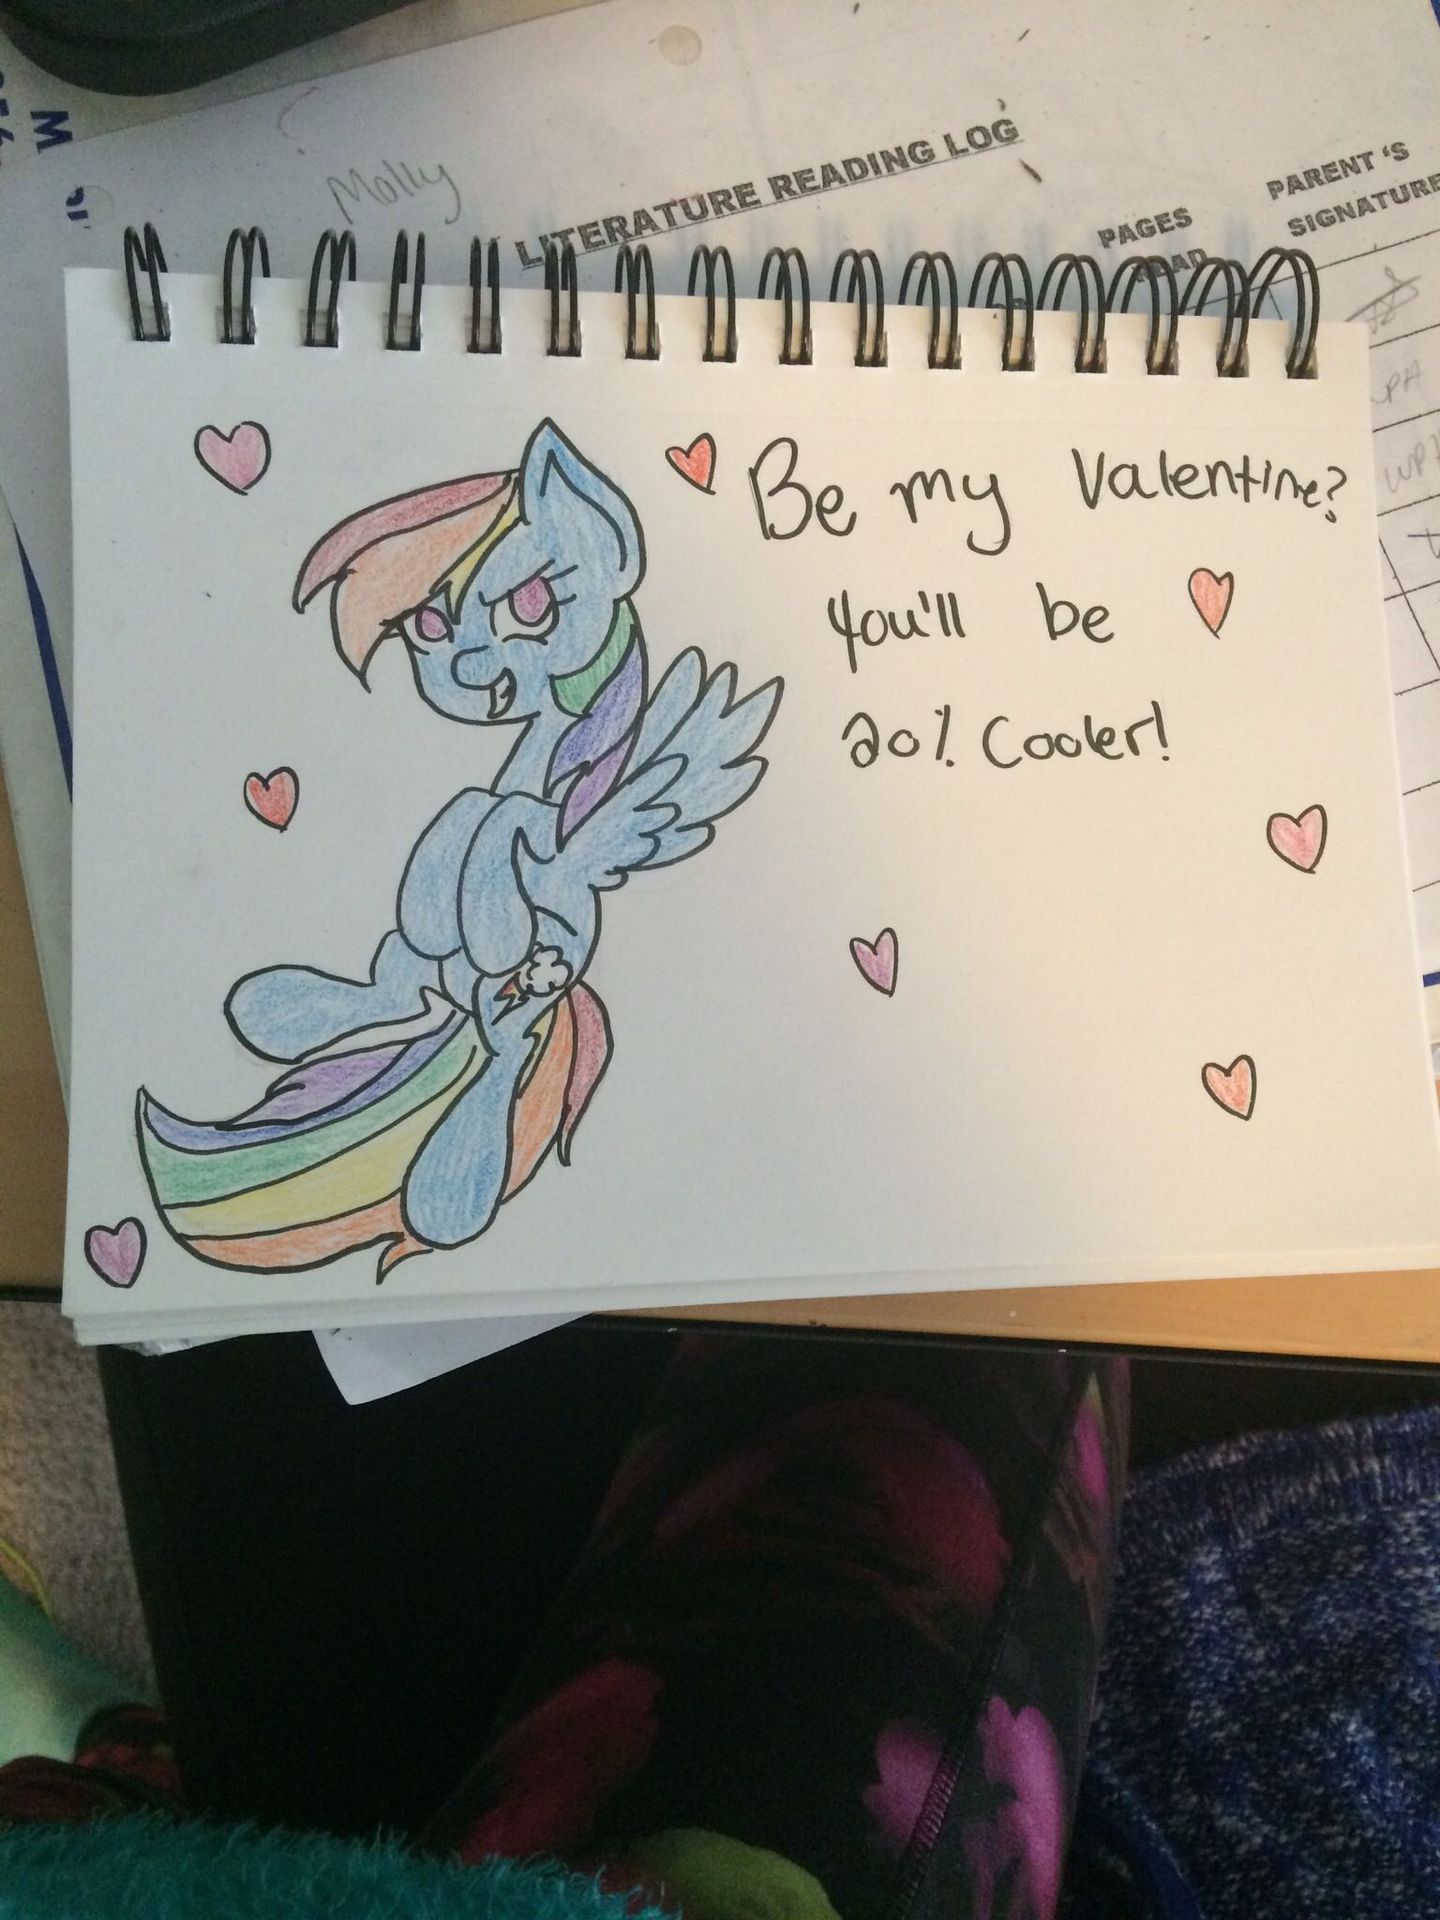 Molly
LITERATURE READING LOG
PAGES
PARENT 'S
SIGNATURE
PH
Be my Valentine?
You'll be
20% Cooler!